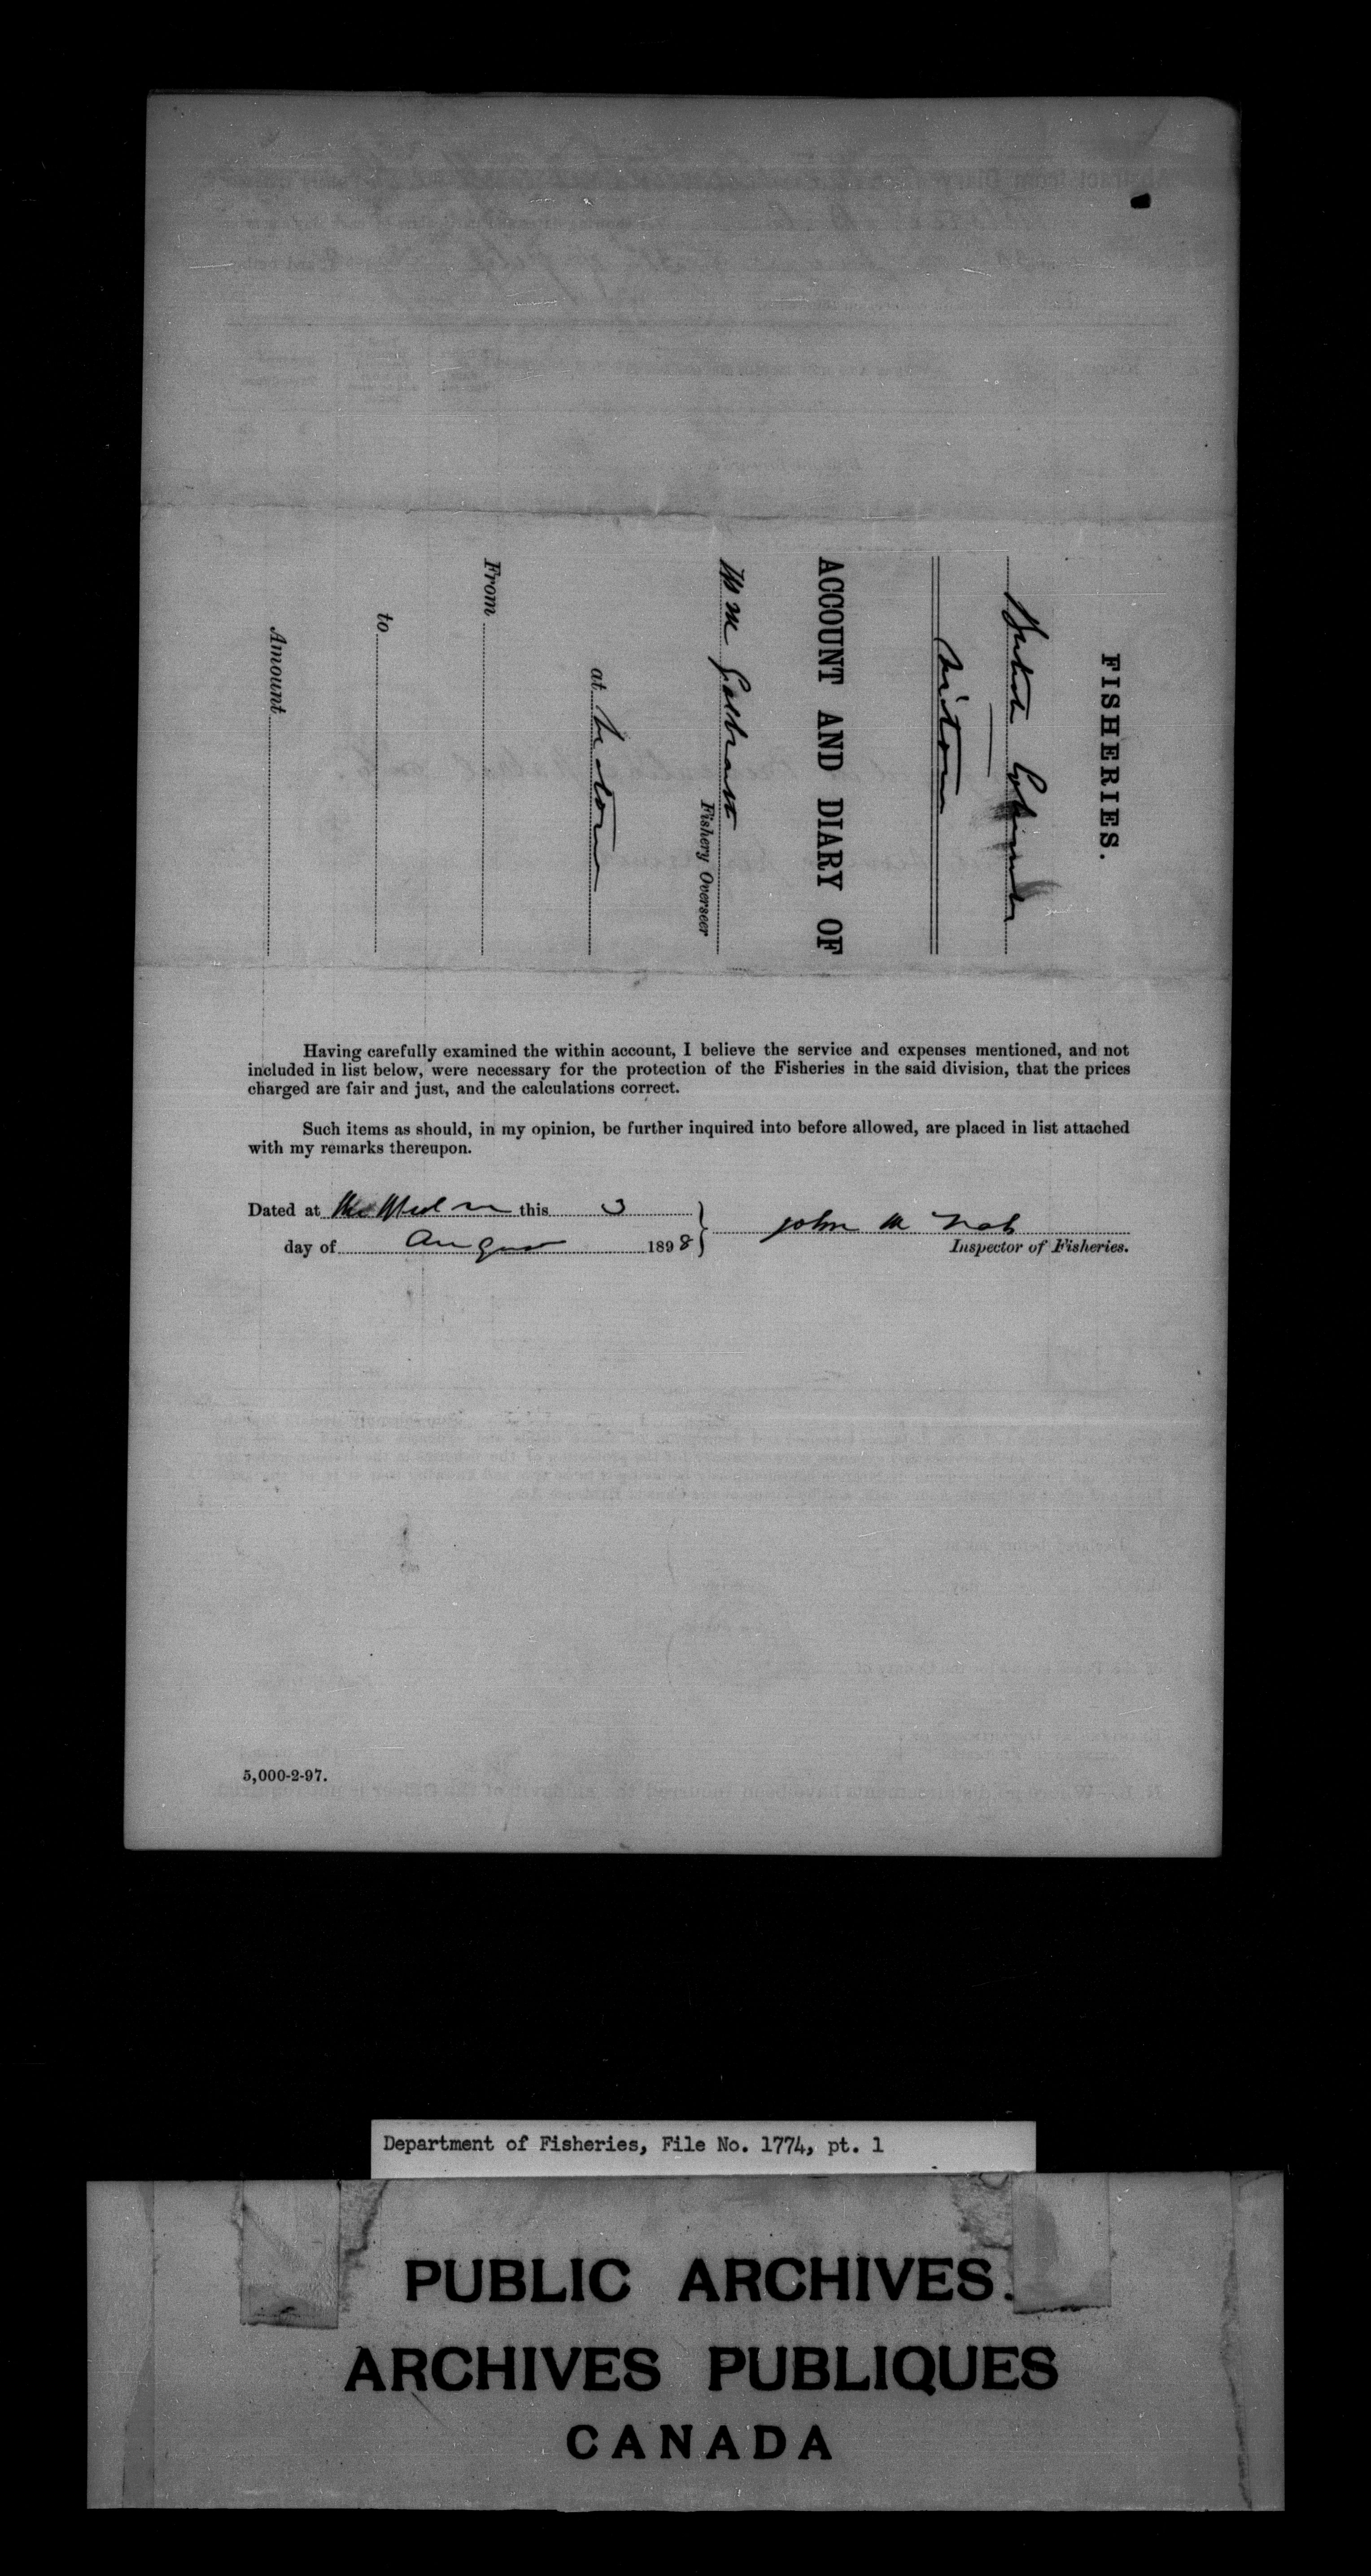 FISHERIES.
British Columbia
ACCOUNT AND DIARY OF
Wm Galbraith
Fishery Overseer
at
From
to
Amount
Having carefully examined the within account, I believe the service and expenses mentioned, and not
included in list below, were necessary for the protection of the Fisheries in the said division, that the prices
charged are fair and just, and the calculations correct.
Such items as should, in my opinion, be further inquired into before allowed, are placed in list attached
with my remarks thereupon.
Dated at this 3
day of August 1898
John McNab
Inspector of Fisheries.
5,000-2-97.
Department of Fisheries, File No. 1774, pt. 1
PUBLIC ARCHIVES.
ARCHIVES PUBLIQUES
CANADA